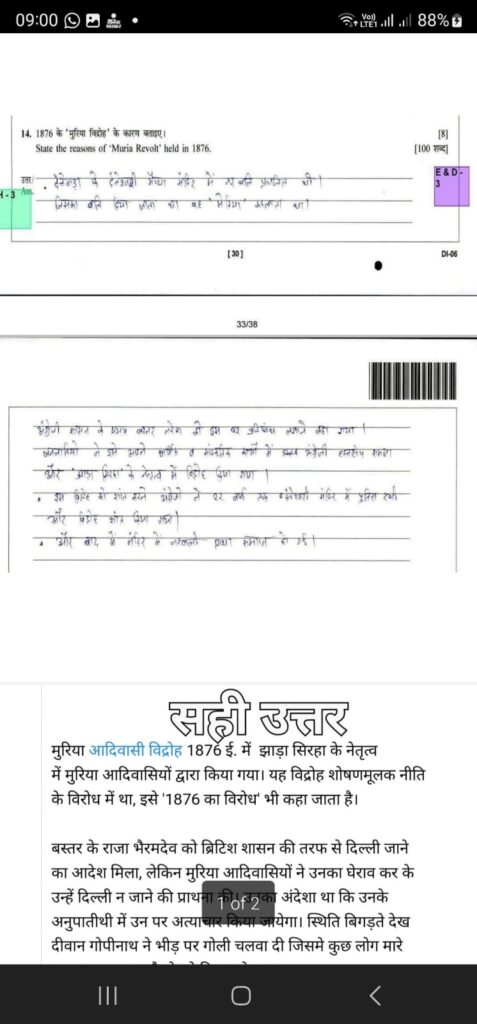 09:00
Vo))
LTE1
88%
14. 1876 के 'मुरिया विद्रोह' के कारण बताइए।
[8]
State the reasons of 'Muria Revolt' held in 1876.
[100 शब्द]
उत्तर/
Ans.
H - 3
E & D -
3
के दंतेश्वरी मैय्या मंदिर में नर बलि प्रचलित थी।
जिसका बलि दिया जाता था वह 'मेरिया' कहलाता था।
[30]
DI-06
33/38
अंग्रेजी शासन ने नरेश को इस पर प्रतिबंध लगाने कहा गया।
ने इसे अपने धार्मिक व कार्यों में अंग्रेजी हस्तक्षेप समझा
और 'झाड़ा सिरहा' के नेतृत्व में विद्रोह किया गया।
• इस विद्रोह को शांत करने अंग्रेजो ने 22 वर्ष तक दंतेश्वरी मंदिर में पुलिस रखी
और विद्रोह शांत किया गया।
• और बाद में मंदिर में नरबली प्रथा समाप्त हो गई।
सही उत्तर
मुरिया आदिवासी विद्रोह 1876 ई. में झाड़ा सिरहा के नेतृत्व
में मुरिया आदिवासियों द्वारा किया गया। यह विद्रोह शोषणमूलक नीति
के विरोध में था, इसे '1876 का विरोध' भी कहा जाता है।
बस्तर के राजा भैरमदेव को ब्रिटिश शासन की तरफ से दिल्ली जाने
का आदेश मिला, लेकिन मुरिया आदिवासियों ने उनका घेराव कर के
उन्हें दिल्ली न जाने की प्राथना की। उनका अंदेशा था कि उनके
1 of 2
अनुपातीथी में उन पर अत्याचार किया जायेगा। स्थिति बिगड़ते देख
दीवान गोपीनाथ ने भीड़ पर गोली चलवा दी जिसमे कुछ लोग मारे